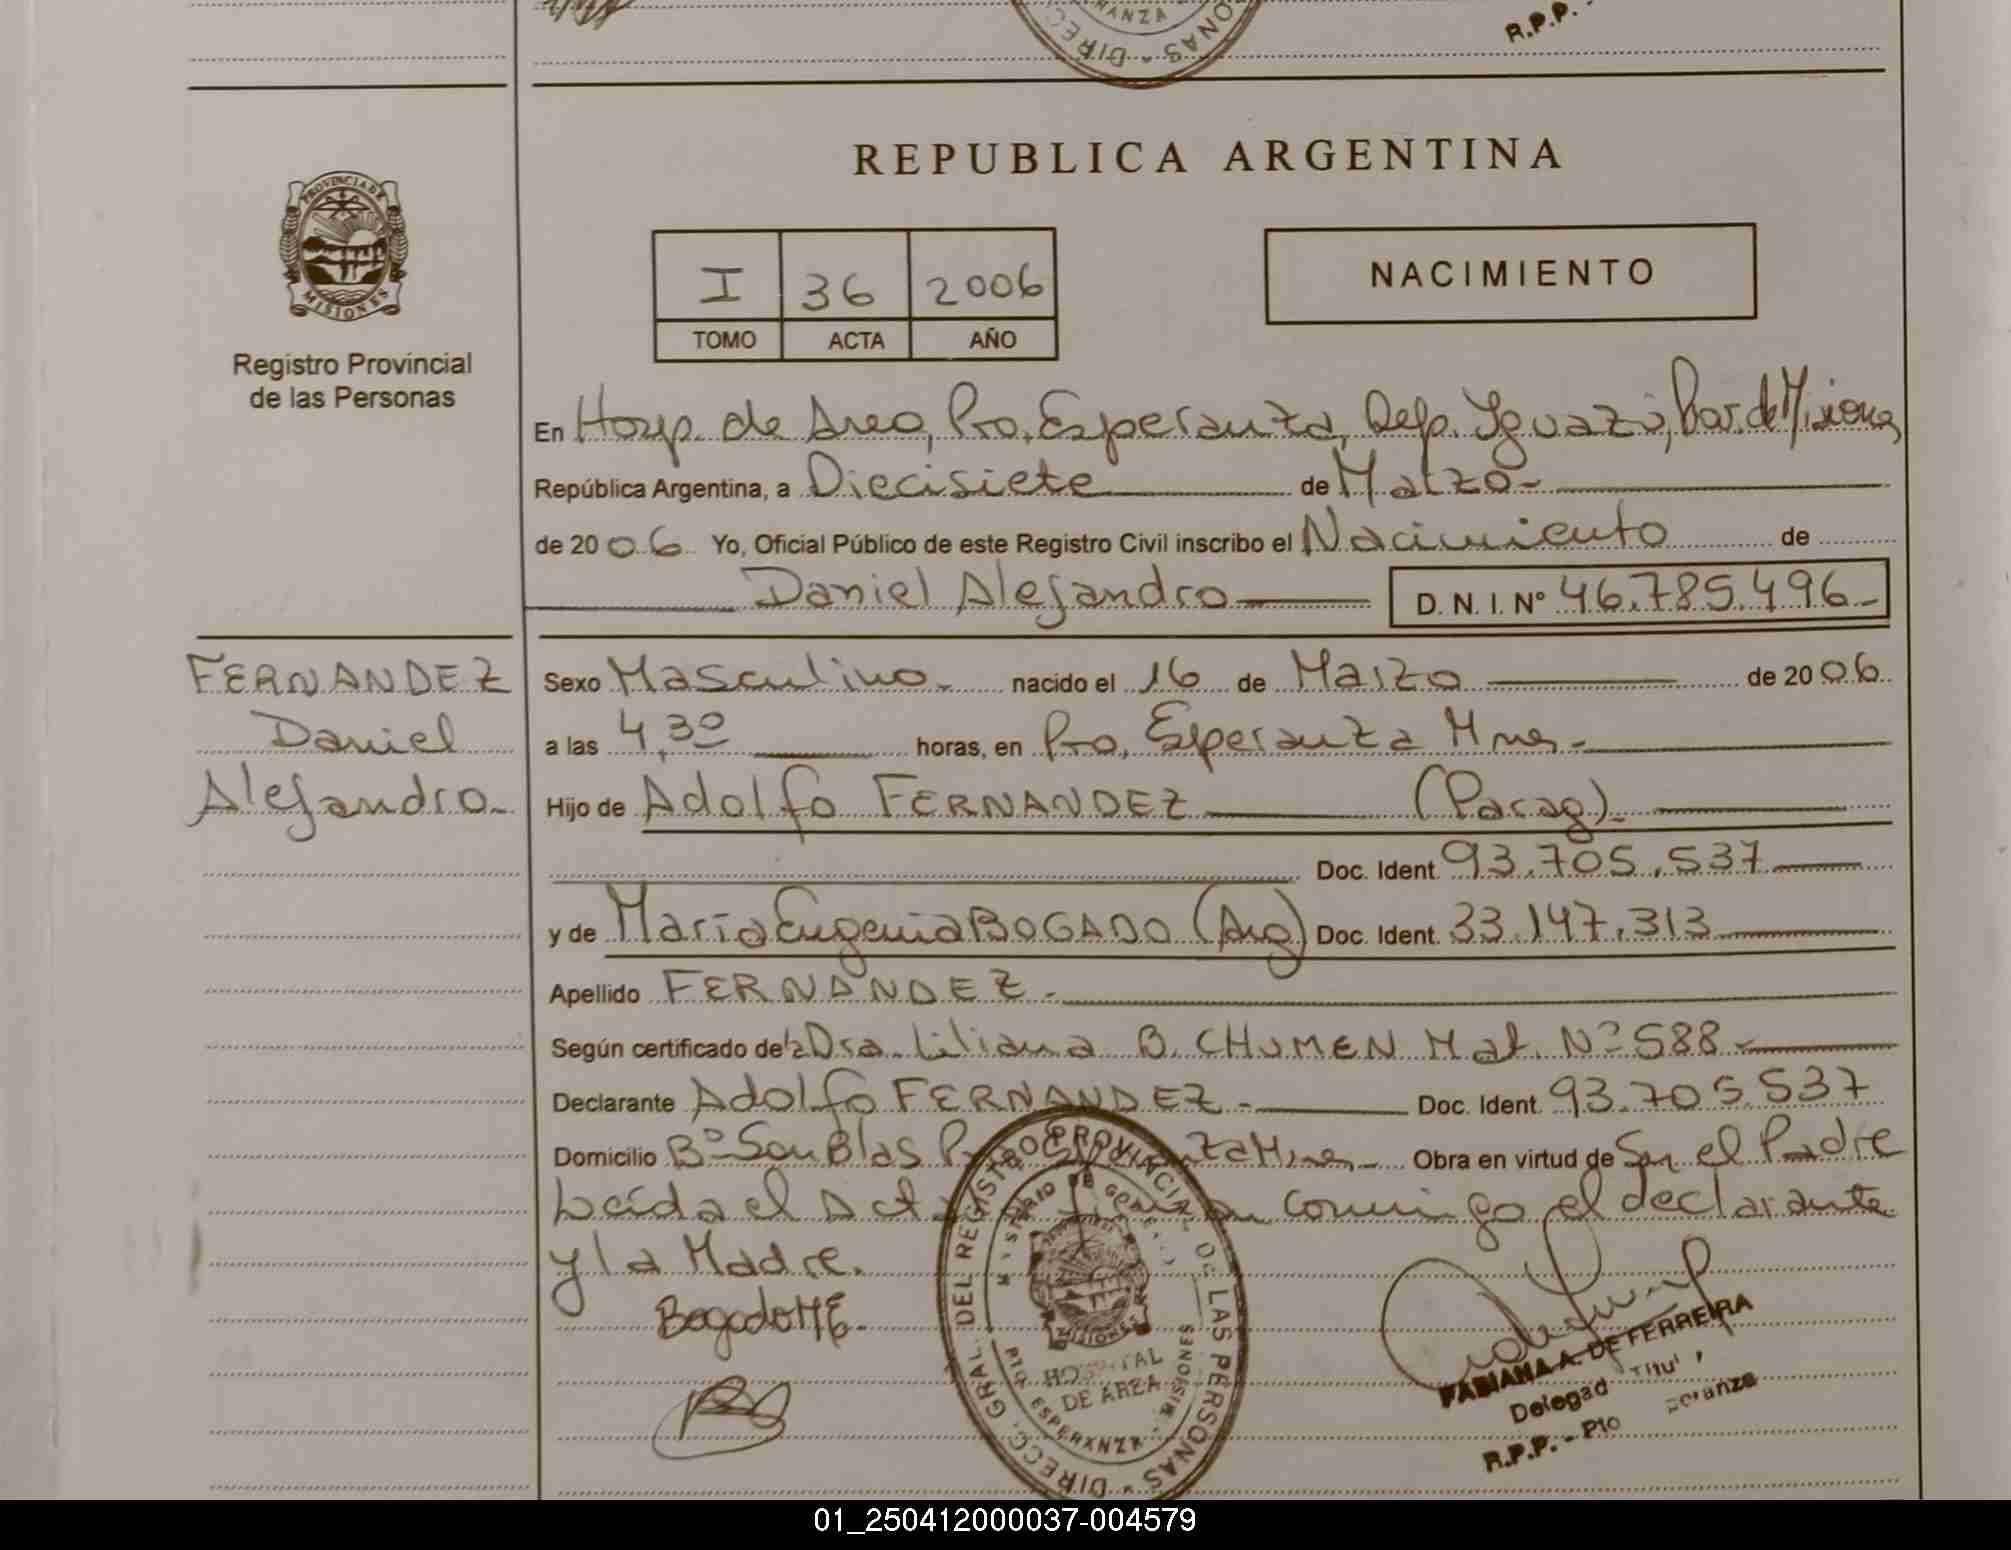 R.P.P. -
REPUBLICA ARGENTINA
PROVINCIA DE
MISIONES
I 36 2006
TOMO ACTA AÑO
NACIMIENTO
Registro Provincial
de las Personas
En Hosp. de Area, Pto. Esperanza, Dep. Iguazú, Pov. de Misiones,
República Argentina, a Diecisiete de Marzo-
de 20 06 Yo, Oficial Público de este Registro Civil inscribo el Nacimiento de
Daniel Alejandro D. N. I. Nº 46.785.496-
FERNANDEZ
Daniel
Alejandro-
Sexo Masculino- nacido el 16 de Marzo de 20 06
a las 4,30 horas, en Pto. Esperanza Mnes-
Hijo de Adolfo FERNANDEZ (Parag)-
Doc. Ident. 93.705.537
y de María Eugenia BOGADO (Arg) Doc. Ident. 33.147.313
Apellido FERNANDEZ-
Según certificado de la Dra. Liliana B. CHUMEN Mat. Nº 588-
Declarante Adolfo FERNANDEZ- Doc. Ident. 93.705.537
Domicilio Bº San Blas Mnes- Obra en virtud de Ser el Padre
Leída el Acta conmigo el declarante
y la Madre.
Bogado M E.
DIRECC. GRAL. DEL REGISTRO PROVINCIAL DE LAS PERSONAS
MINISTERIO DE
MISIONES
HOSPITAL
DE AREA
PTO. ESPERANZA - MISIONES
FABIANA A. DE FERREIRA
Delegad Titul
R.P.P. - Pto eranza
01_250412000037-004579